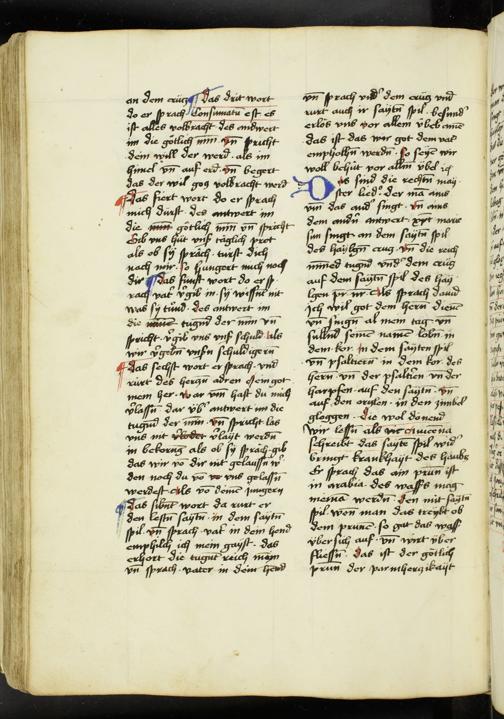 an dem crüz das drit wort
do er sprach Consumatu est es
ist alles volbracht des antwert
im die götlich min vn̄ spricht
dein will der werd als im
himel vn̄ auf erd vn̄ begert
das der wil gog volbracht werd
das fiert wort do er sprach
mich dürst des antwort im
die götlich min vn̄ spricht
Gib vns hüt vnß täglich prot
als ob sy sprach türst dich
nach mir so hungert mich noch
dir das fünft wort do er sp
rach vat̄ v̈gib in sy wissn̄t nit
was sy tünd des antwort im
die tugnd der min vn̄
spricht v̈gib vns vnß schuld als
wir v̈gebn̄ vnsn̄ schuldigern
das sechst wort er sprach vnd
rürt des herczn̄ adren O mein got
mein her war vm̄ hast du mich
v̈lassn̄ dar vb̄ antwert im die
tugnd der min vn̄ spricht las
vns nit v̈laÿt werdn̄
in bekorūg als ob sy sprach gib
das wir vō dir nit gelassn̄
den noch du vō vns gelassn̄
werdest als vō deinē jungern
das sibn̄t wort da rürt er
den lestn̄ saytn̄ in dem saytn̄
spil vn̄ sprach vat̄ in dein hend
emphilch ich mein gayst das
erhort die tugnt reich min
vn̄ sprach vater in dein hend
vn̄ sprach vnd̄ dem crüz vnd
rürt auch ir saytn̄ spil besund̄
erlös vns vor allem v̈bel amē
das ist das wir got dem vat̄
empholln̄ werdn̄ so seyē wir
woll behüt vor allm̄ v̈bel
Das sind die rechtn̄ may
ster lied der nā ains
vn̄ das and̄ singt vn̄ ains
dem andn̄ antwert
sun singt an dem saytn̄ spil
des haylgn̄ crüz vn̄ die reich
tugnd vnd̄ dem crüz
auf dem saytn̄ spil des hay
lgn̄ als sprach dauid
Ich wil got dem hern̄ dienē
vn̄ singn̄ al mein tag vn̄
seinē namē lobn̄ in
dem kor in dem saytn̄ spil
vn̄ psaltern̄ in dem kor des
hern̄ vn̄ der psaltrn̄ vn der
harpfen auf den saytn̄ vn̄
auf den orgln̄ in den zimbel
gloggen die wol donend
wir lesn̄ als auicena
schreibt das sayte spil wid̄
bringt kranckhayt des haubt
Er sprach das ain prun̄ ist
in arabia des wassß mag
werdn̄ den mit saytn̄
spil wen man das treybt ob
dem prunē so gat das wass̄
v̈bersich auf vn̄ wirt v̈ber
fliessn̄ das ist der götlich
prun̄ der parmherczikaÿt